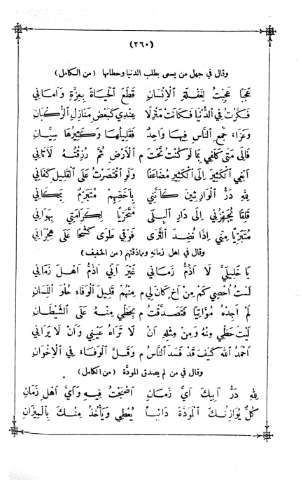 (٢٦٠)
وقال في جهل من يسعى بطلب الدنيا وحطامها (من الكامل)
عَجَبًا عَجِبْتُ لِغَفْلَةِ ٱلْإِنْسَانِ قَطَعَ ٱلْحَيَاةَ بِعِزَّةٍ وَأَمَانِي
فَكَّرْتُ فِي ٱلدُّنْيَا فَكَانَتْ مَنْزِلًا عِنْدِي كَبَعْضِ مَنَازِلِ ٱلرُّكْبَانِ
جَمِيعِ ٱلنَّاسِ فِيهَا وَاحِدٌ فَقَلِيلُهَا وَكَثِيرُهَا سِيَّانِ
فَإِلَى مَتَى كَلَفِي بِمَا لَوْ كُنْتُ تَحْتَ م ٱلْأَرْضِ ثُمَّ رُزِقْتُهُ لَأَتَانِي
أَبْغِي ٱلْكَثِيرَ إِلَى ٱلْكَثِيرِ مُضَاعَفًا وَلَوِ ٱقْتَصَرْتُ عَلَى ٱلْقَلِيلِ كَفَانِي
لِلهِ دَرُّ ٱلْوَارِثِينَ كَأَنَّنِي بِأَخَصِّهِمْ مُتَبَرِّمٌ بِمَكَانِي
قَلِقًا يُجَهِّزُنِي إِلَى دَارِ ٱلْبِلَى مُتَحَرِّيًا لِكَرَامَتِي بِهَوَانِي
مُتَبَرِّيًا مِنِّي إِذَا نُضِدَ ٱلثَّرَى فَوْقِي طَوَى كَشْحًا عَلَى هِجْرَانِي
وقال في اهل زمانه ومماذقتهم (من الخفيف)
يَا خَلِيلَيَّ لَا أَذُمُّ زَمَانِي غَيْرَ أَنِّي أَذُمُّ أَهْلَ زَمَانِي
لَسْتُ أُحْصِي كَمْ مِنْ أَخٍ كَانَ لِي م مِنْهُمْ قَلِيلِ ٱلْوَفَاءِ حُلْوِ ٱللِّسَانِ
لَمْ أَجِدْهُ مُؤَاتِيًا فَتَصَدَّقْتُ م بِحَظِّي مِنْهُ عَلَى ٱلشَّيْطَانِ
لَيْتَ حَظِّي مِنْهُ وَمِنْ مِثْلِهِ أَنْ لَا تَرَاهُ عَيْنِي وَأَنْ لَا يَرَانِي
أَحْمَدُ ٱللهَ كَيْفَ قَدْ فَسَدَ ٱلنَّاسُ م وَقَلَّ ٱلْوَفَاءُ فِي ٱلْإِخْوَانِ
وقال في من لم يصدق المودَّة (من الكامل)
لِلهِ دَرُّ أَبِيكَ أَيُّ زَمَانِ أَصْبَحْتَ فِيهِ وَأَيُّ أَهْلِ زَمَانِ
كُلٌّ يُوَازِنُكَ ٱلْمَوَدَّةَ دَائِبًا يُعْطِي وَيَأْخُذُ مِنْكَ بِٱلْمِيزَانِ